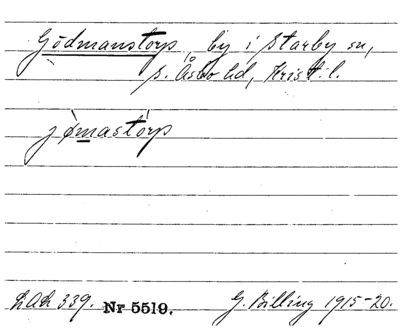 Gödmanstorp, by i Starby sn,
S. Åsbo hd, Krist. l.
jømastorp
LAL 339. Nr 5519. G. Billing 1915-20.